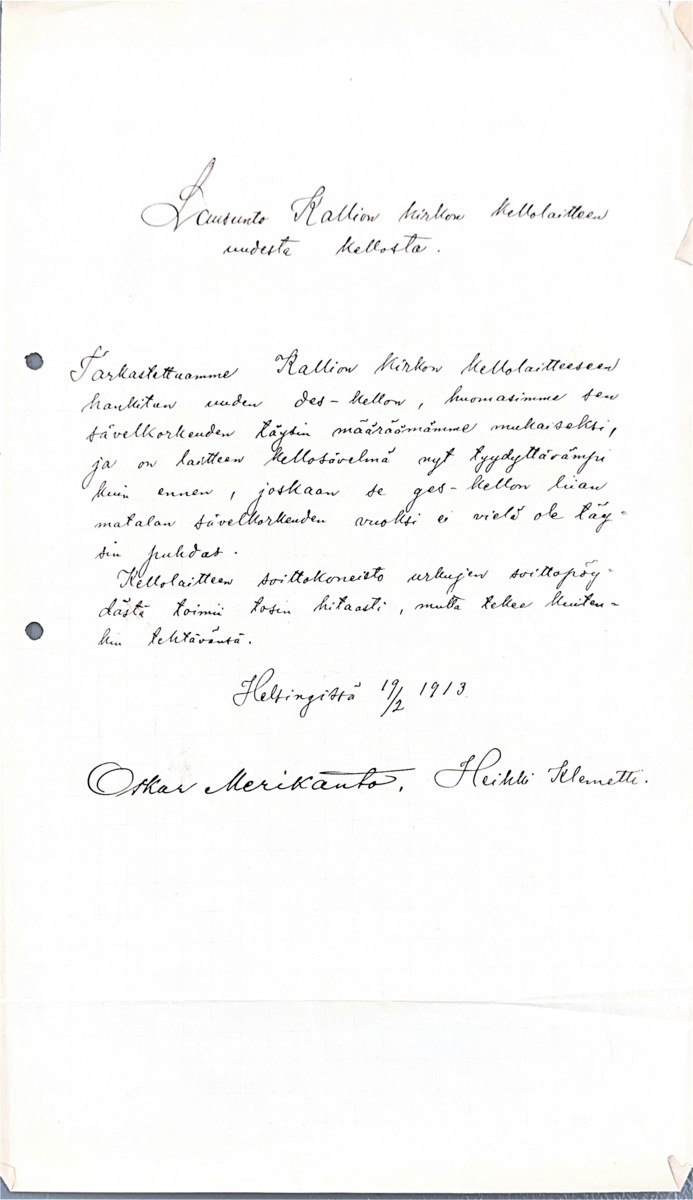 Lausunto Kallion kirkon kellolaitteen
uudesta kellosta.
Tarkastettuamme Kallion kirkon kellolaitteeseen
hankitun uuden des-kellon, huomasimme sen
sävelkorkeuden täysin määräämämme mukaiseksi,
ja on laitteen kellosävelmä nyt tyydyttävämpi
kuin ennen, joskaan se ges-kellon liian
matalan sävelkorkeuden vuoksi ei vielä ole täy-
sin puhdas.
Kellolaitteen soittokoneisto urkujen soittopöy-
dästä toimii tosin hitaasti, mutta tekee kuiten-
kin tehtävänsä.
Helsingissä 19/2 1913.
Oskar Merikanto. Heikki Klemetti.